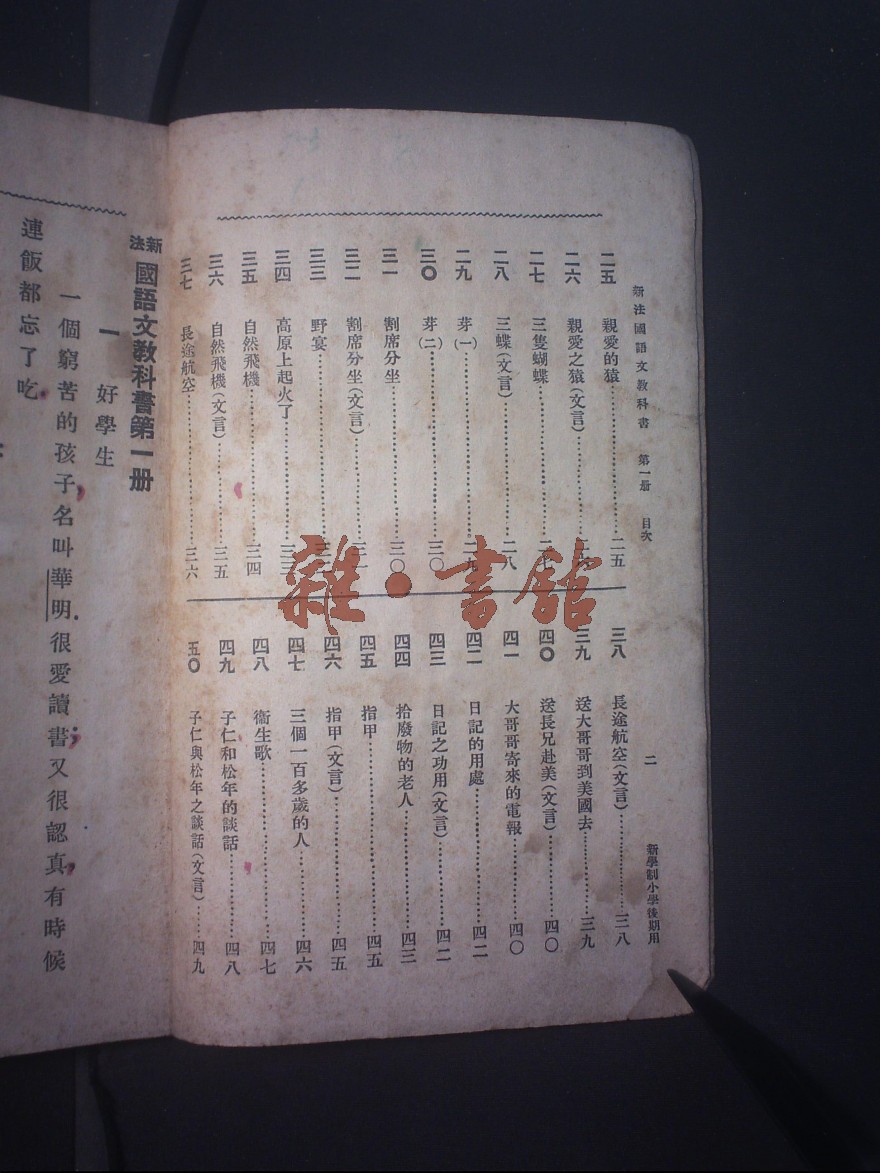 新法國語文教科書 第一册 目次 二 新學制小學後期用
二五 親愛的猿 二五
二六 親愛之猿(文言)
二七 三隻蝴蝶 二七
二八 三蝶(文言) 二八
二九 芽(一) 二九
三〇 芽(二) 三〇
三一 割席分坐 三〇
三二 割席分坐(文言) 三一
三三 野宴
三四 高原上起火了 三三
三五 自然飛機 三四
三六 自然飛機(文言) 三五
三七 長途航空 三六
三八 長途航空(文言) 三八
三九 送大哥哥到美國去 三九
四〇 送長兄赴美(文言) 四〇
四一 大哥哥寄來的電報 四〇
四二 日記的用處 四二
四三 日記之功用(文言) 四二
四四 拾廢物的老人 四三
四五 指甲 四五
四六 指甲(文言) 四五
四七 三個一百多歲的人 四六
四八 衞生歌 四七
四九 子仁和松年的談話 四八
五〇 子仁與松年之談話(文言) 四九
雜·書舘
新法國語文教科書第一册
一 好學生
一個窮苦的孩子,名叫華明.很愛讀書;又很認真,有時候
連飯都忘了吃.